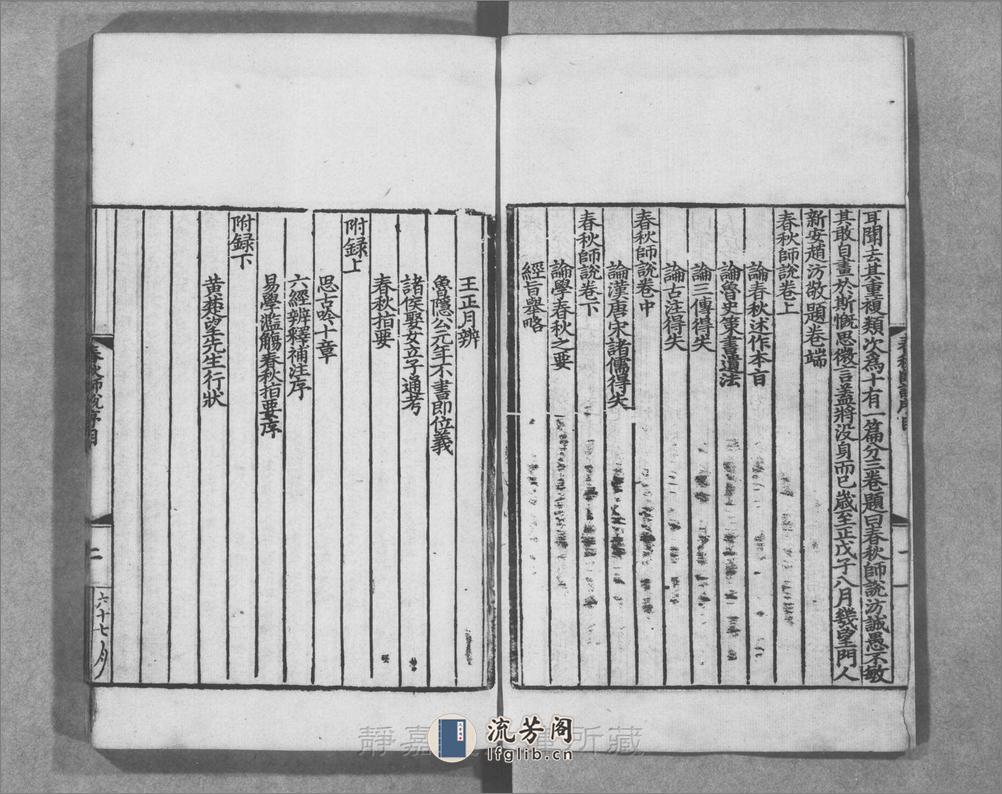 耳聞去其重複類次為十有一篇分三卷題曰春秋師說汸誠愚不敏
其敢自畫於斯慨思微言蓋將沒身而已歲至正戊子八月幾望門人
新安趙汸敬題卷端
春秋師說卷上
論春秋述作本旨
論魯史策書遺法
論三傳得失
論古注得失
春秋師說卷中
論漢唐宋諸儒得失
春秋師說卷下
論學春秋之要
經旨舉略
王正月辨
魯隱公元年不書即位義
諸侯娶女立子通考
春秋指要
附録上
思古吟十章
六經辨釋補注序
易學濫觴春秋指要序
附録下
黄楚望先生行狀
春秋師說序目
二
六十七
靜嘉
所藏
流芳阁
lfglib.cn